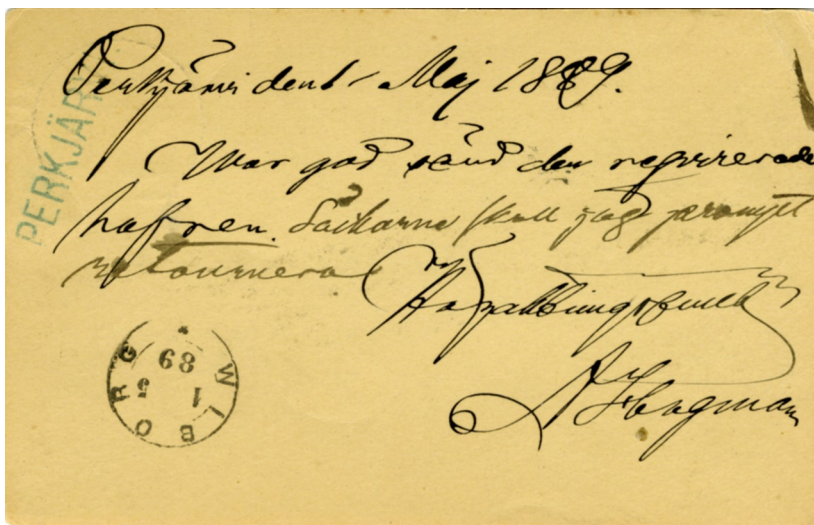 Perkjärvi den 1 Maj 1889.
War god sänd den reqvirerade
hafren. Säckarne skall jag promt
retournera
Högaktningsfullt
A Hagman
PERKJÄRVI
WIBORG
1 5
89